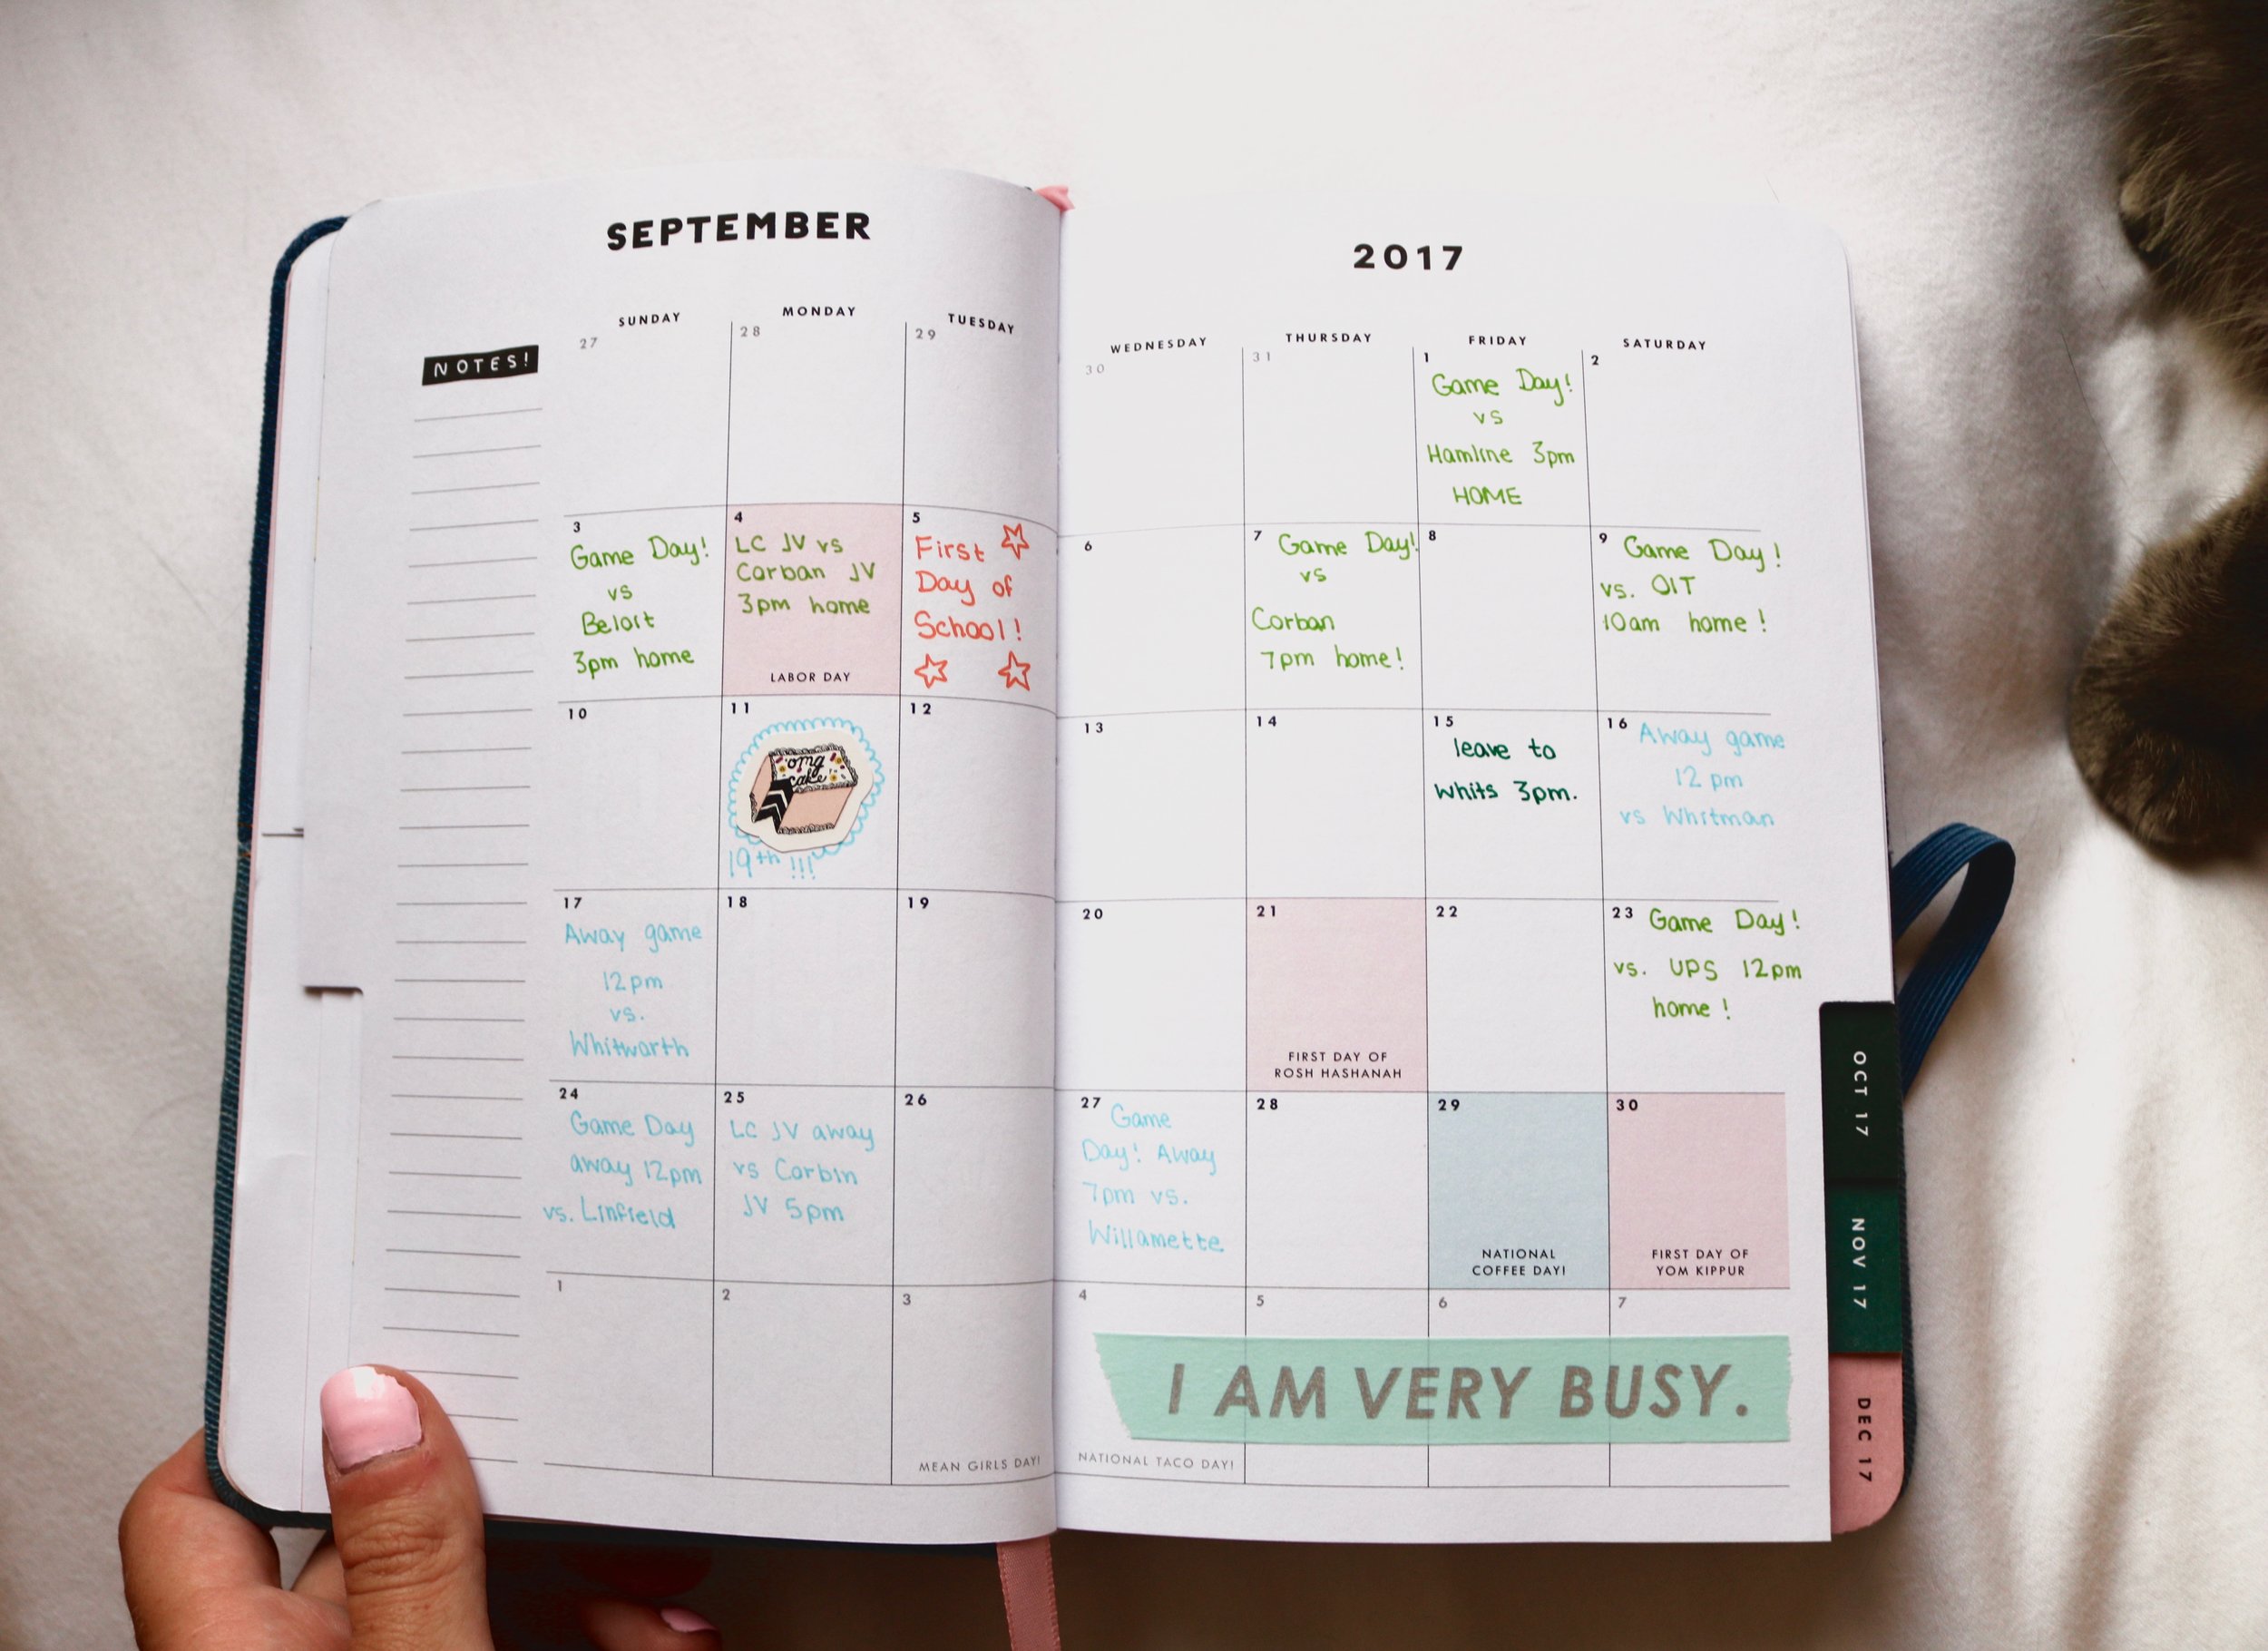 SEPTEMBER
2017
NOTES!
SUNDAY
MONDAY
TUESDAY
WEDNESDAY
THURSDAY
FRIDAY
SATURDAY
27
28
29
30
31
1
Game Day!
vs
Hamline 3pm
HOME
2
3
Game Day!
vs
Beloit
3pm home
4
LC JV vs
Corban JV
3pm home
LABOR DAY
5
First
Day of
School!
6
7
Game Day!
vs
Corban
7pm home!
8
9
Game Day!
vs. OIT
10am home!
10
11
omg
cake
19th !!!
12
13
14
15
leave to
whits 3pm.
16
Away game
12 pm
vs Whitman
17
Away game
12pm
vs.
Whitworth
18
19
20
21
FIRST DAY OF
ROSH HASHANAH
22
23
Game Day!
vs. UPS 12pm
home!
24
Game Day
away 12pm
vs. Linfield
25
LC JV away
vs Corbin
JV 5pm
26
27
Game
Day! Away
7pm vs.
Willamette
28
29
NATIONAL
COFFEE DAY!
30
FIRST DAY OF
YOM KIPPUR
1
2
3
MEAN GIRLS DAY!
4
NATIONAL TACO DAY!
5
6
7
I AM VERY BUSY.
OCT 17
NOV 17
DEC 17